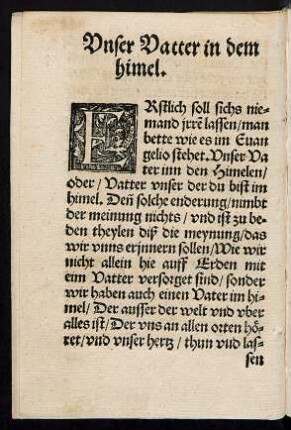 Vnser Vatter in dem
himel.
ERstlich soll sichs nie-
mand jrrē lassen/man
bette wie es im Euan
gelio stehet. Vnser Va
ter inn den Himelen/
oder/ Vatter vnser der du bist im
himel. Deñ solche enderung/nimbt
der meinung nichts/ vnd ist zu be-
den theylen diß die meynung/das
wir vnns erjnnern sollen/Wie wir
nicht allein hie auff Erden mit
eim Vatter versorget sind/ sonder
wir haben auch einen Vater im hi-
mel/ Der ausser der welt vnd vber
alles ist/Der vns an allen orten hö-
ret/vnd vnser hertz/ thun vnd las-
sen